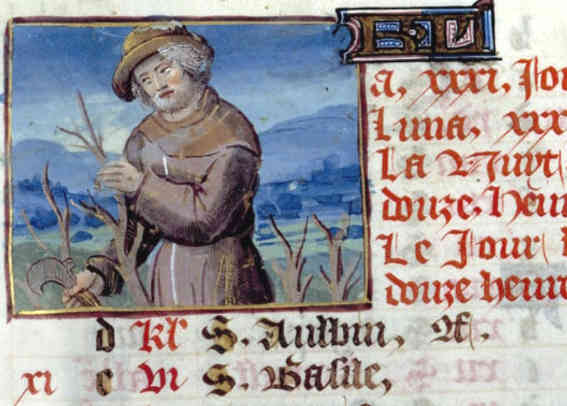 a, xxxi, Jou
Luna, xxx
La Nuyt
douze, heur
Le Jour
douze heure
d kl' S. Aulbin,
xi e vi S. Basile,